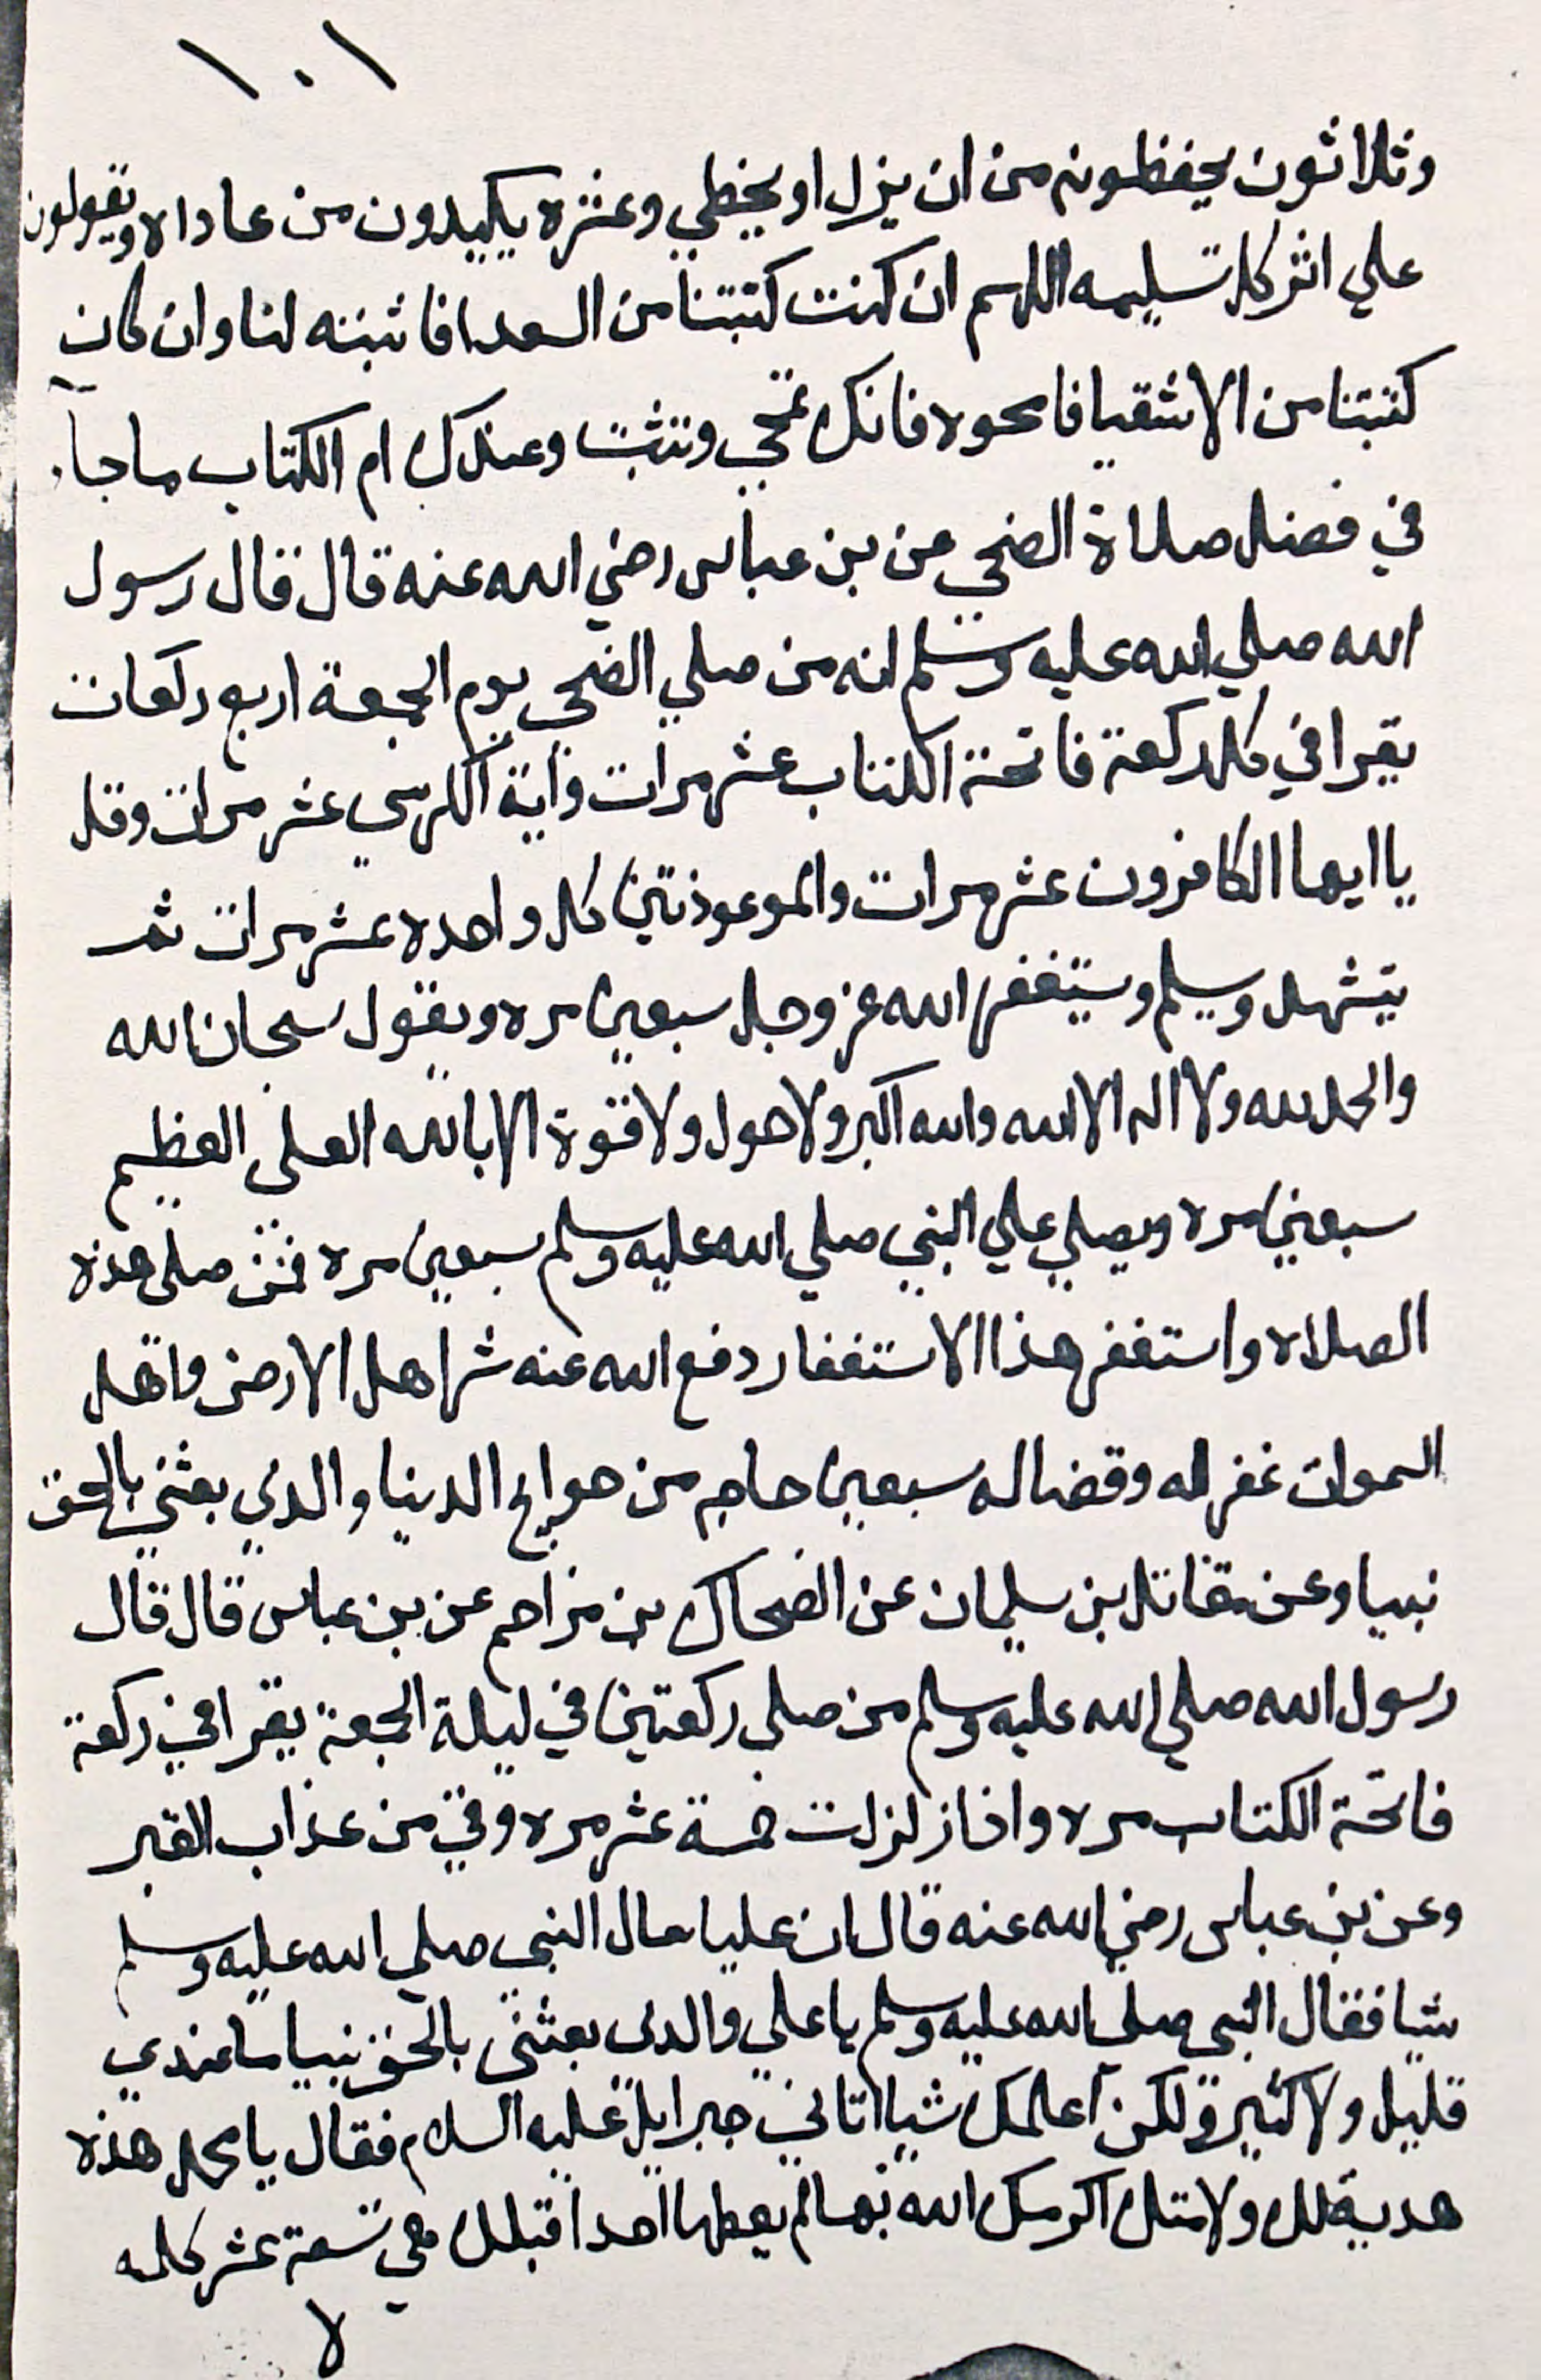 ١٠١
وثلاثون يحفظونه من ان يزل او يخطي وعشره يكيدون من عاداه ويقولون
علي اثر كل تسليمه اللهم ان كنت كتبتنا من السعدا فاثبته لنا وان كان
كتبتنا من الاشقيا فامحوه فانك تمحي وتثبت وعندك ام الكتاب ماجآء
في فضل صلاة الضحي عن بن عباس رضي الله عنه قال قال رسول
الله صلي الله عليه وسلم انه من صلي الضحي يوم الجمعة اربع ركعات
يقرا في كل ركعة فاتحة الكتاب عشر مرات واية الكرسي عشر مرات وقل
يا ايها الكافرون عشر مرات والموعوذتين كل واحده عشر مرات ثم
يتشهد ويسلم ويستغفر الله عز وجل سبعين مره ويقول سبحان الله
والحمد لله ولا اله الا الله والله اكبر ولا حول ولا قوة الا بالله العلي العظيم
سبعين مره ويصلي علي النبي صلي الله عليه وسلم سبعين مره فمن صلي هذه
الصلاه واستغفر هذا الاستغفار دفع الله عنه شر اهل الارض واهل
السموات غفر له وقضا له سبعين حاجه من حوايج الدنيا والدي بعثني بالحق
نبيا وعن مقاتل بن سليمان عن الضحاك بن مزاحم عن بن عباس قال قال
رسول الله صلي الله عليه وسلم من صلي ركعتين في ليلة الجمعة يقرا في ركعة
فاتحة الكتاب مره واذا زلزلت خمسة عشر مره وقي من عذاب القبر
وعن بن عباس رضي الله عنه قال ان عليا سال النبي صلي الله عليه وسلم
شيا فقال النبي صلي الله عليه وسلم يا علي والدي بعثني بالحق نبيا ما عندي
قليل ولا كثير ولكن اعلمك شيا اتاني جبرايل عليه السلام فقال يا محمد هذه
هدية لك ولامتك اكرمك الله بها لم يعطها احدا قبلك هي تسعة عشر كلمه
لا